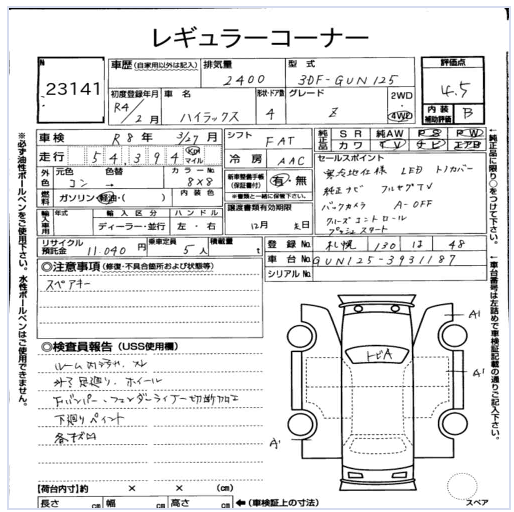 レギュラーコーナー
No 23141
車歴 (自家用以外は記入) 排気量 2400 型式 3DF-GUN125 評価点 4.5
初度登録年月 R4/2月 車名 ハイラックス 形状・ドア数 4 グレード Z 2WD 4WD 内装補助評価 B
車検 R8年 3/27月 シフト FAT 純正品 SR 純AW PS PW
カワ TV ナビ エアB
走行 54,394 Km マイル 冷房 AAC セールスポイント
外色 元色 コン→ 色替 カラーNo. 8×8 新車整備手帳(保証書付) 有・無 寒冷地仕様 LED トノカバー
純正ナビ フルセグTV
燃料 ガソリン・軽油・( ) 内装色 バックカメラ A-OFF
輸入車用 年式 輸入区分 ディーラー・並行 ハンドル 左・右 譲渡書類有効期限 12月 E日 クルーズコントロール
プッシュスタート
リサイクル預託金 11,040円 乗車定員 5人 積載量 t 登録No. 札幌 130 48
車台No. GUN125-3931187
シリアルNo.
◎注意事項 (修復・不具合箇所および状態等)
スペアキー
◎検査員報告 (USS使用欄)
外、下廻り、ホイール
Fバンパー、フェンダーライナー切断加工
下廻りペイント
トビA
A'
A'
A'
【荷台内寸】約 × × (cm)
長さ cm 幅 cm 高さ cm ←(車検証上の寸法)
スペア
※必ず油性ボールペンをご使用下さい。水性ボールペンはご使用できません。
←純正品に限り○をつけて下さい。
←車台番号は左詰めで車検証記載の通りご記入下さい。